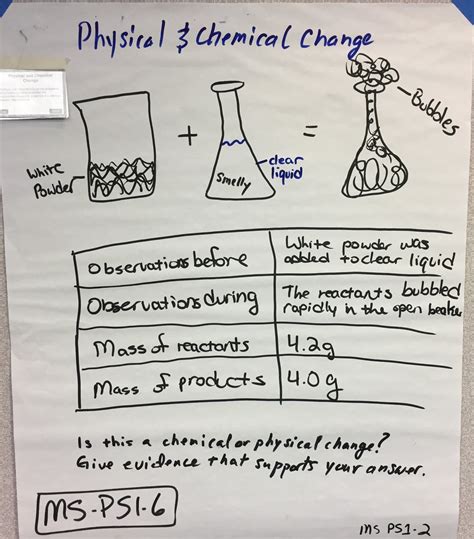 Physical & Chemical Change
Physical and Chemical
Change
White
Powder
+
Smelly
clear
liquid
=
Bubbles
Observations before
White powder was
added to clear liquid
Observations during
The reactants bubbled
rapidly in the open beaker
Mass of reactants
4.2g
Mass of products
4.0g
Is this a chemical or physical change?
Give evidence that supports your answer.
MS-PS1-6
MS PS1-2